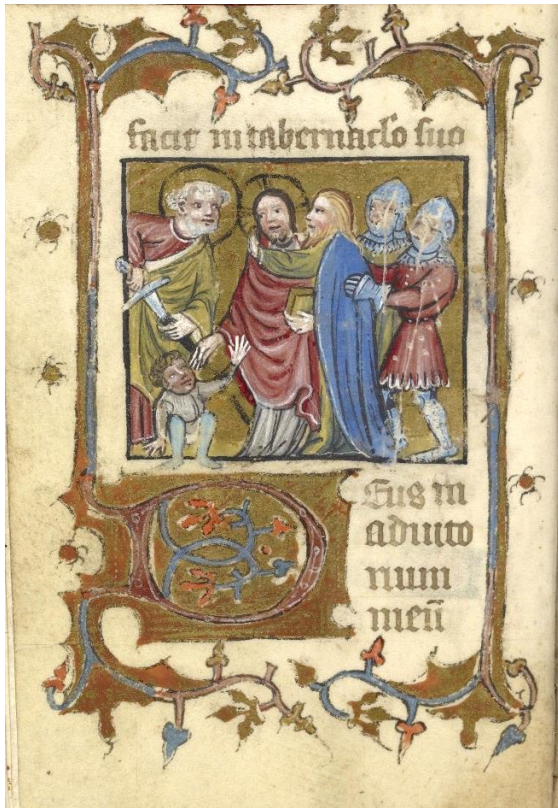 facit in tabernaclo suo
Deus in
adiuto
rium
meū